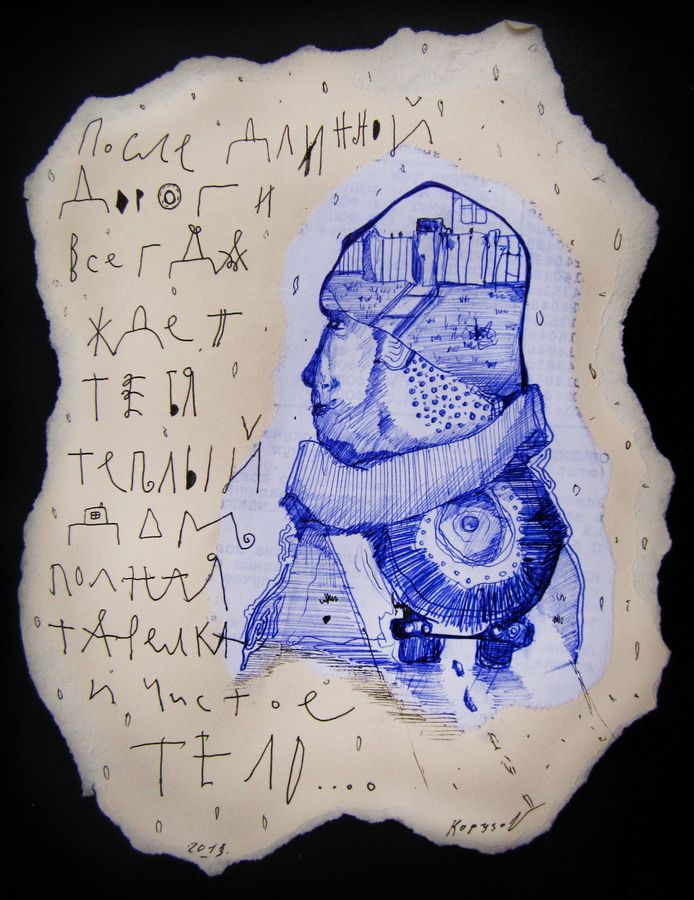 После длинной
дороги
всегда
ждет
тебя
теплый
дом
полная
тарелка
и чистое
тело....
2013.